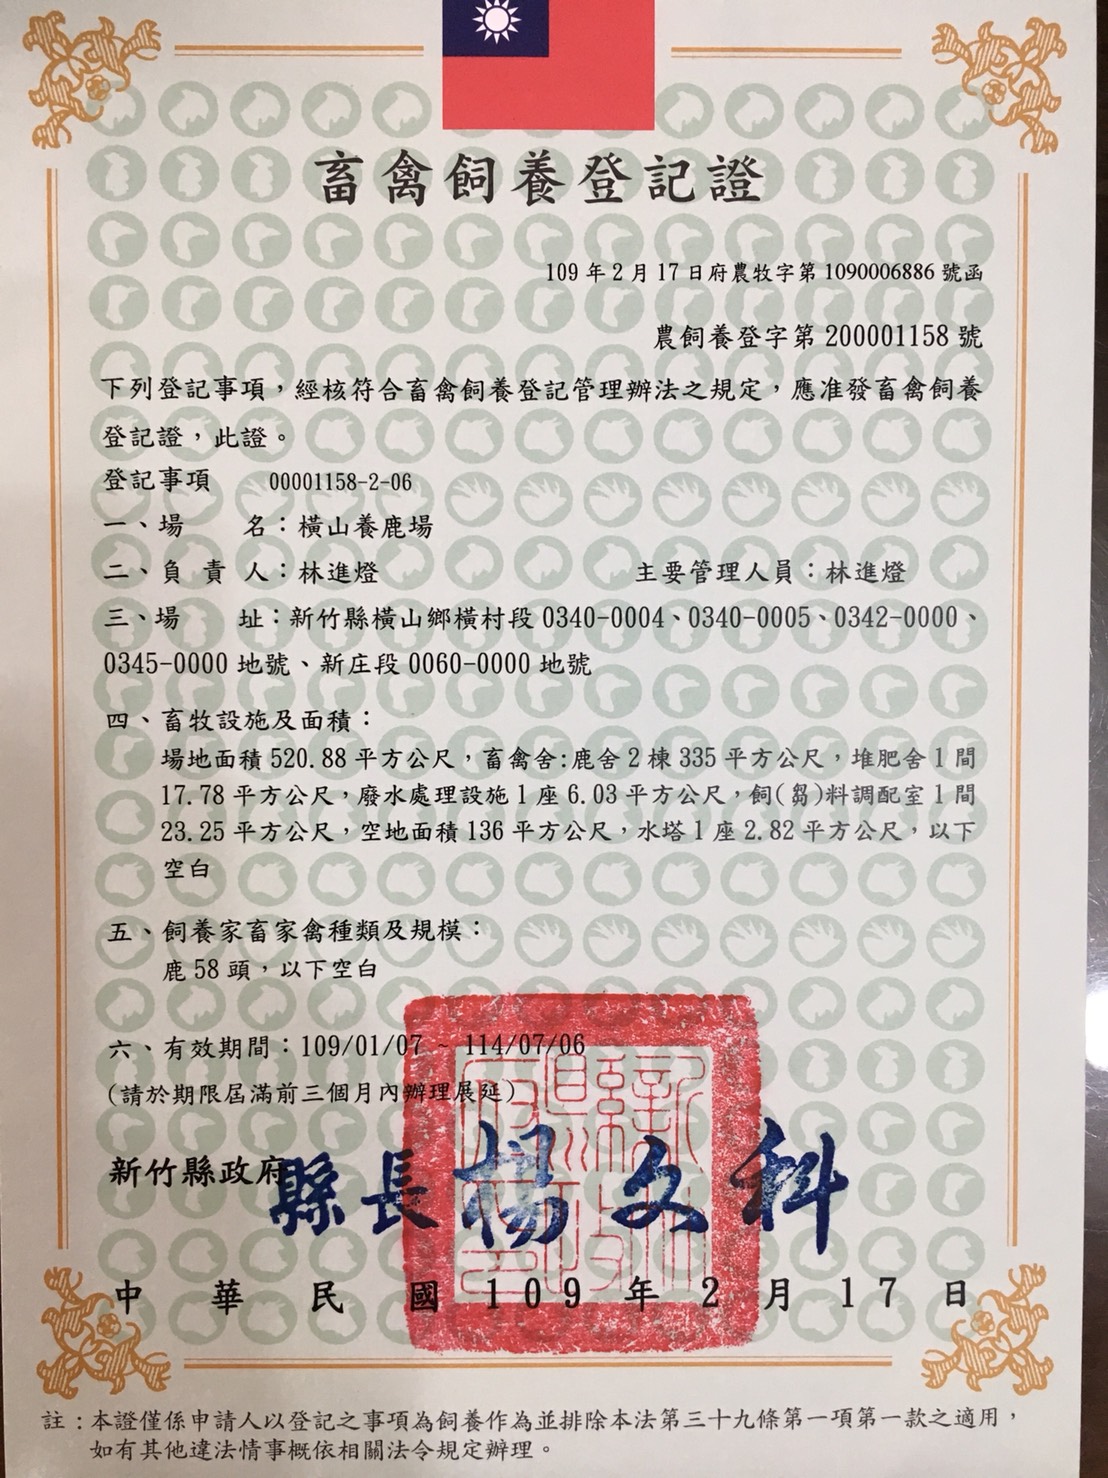 畜禽飼養登記證
109 年 2 月 17 日府農牧字第 1090006886 號函
農飼養登字第 200001158 號
下列登記事項，經核符合畜禽飼養登記管理辦法之規定，應准發畜禽飼養
登記證，此證。
登記事項 00001158-2-06
一、場 名：橫山養鹿場
二、負 責 人：林進燈 主要管理人員：林進燈
三、場 址：新竹縣橫山鄉橫村段 0340-0004、0340-0005、0342-0000、
0345-0000 地號、新庄段 0060-0000 地號
四、畜牧設施及面積：
場地面積 520.88 平方公尺，畜禽舍:鹿舍 2 棟 335 平方公尺，堆肥舍 1 間
17.78 平方公尺，廢水處理設施 1 座 6.03 平方公尺，飼(芻)料調配室 1 間
23.25 平方公尺，空地面積 136 平方公尺，水塔 1 座 2.82 平方公尺，以下
空白
五、飼養家畜家禽種類及規模：
鹿 58 頭，以下空白
六、有效期間：109/01/07 ~ 114/07/06
(請於期限屆滿前三個月內辦理展延)
新竹縣政府 縣長 楊文科
中 華 民 國 109 年 2 月 17 日
註：本證僅係申請人以登記之事項為飼養作為並排除本法第三十九條第一項第一款之適用，
如有其他違法情事概依相關法令規定辦理。